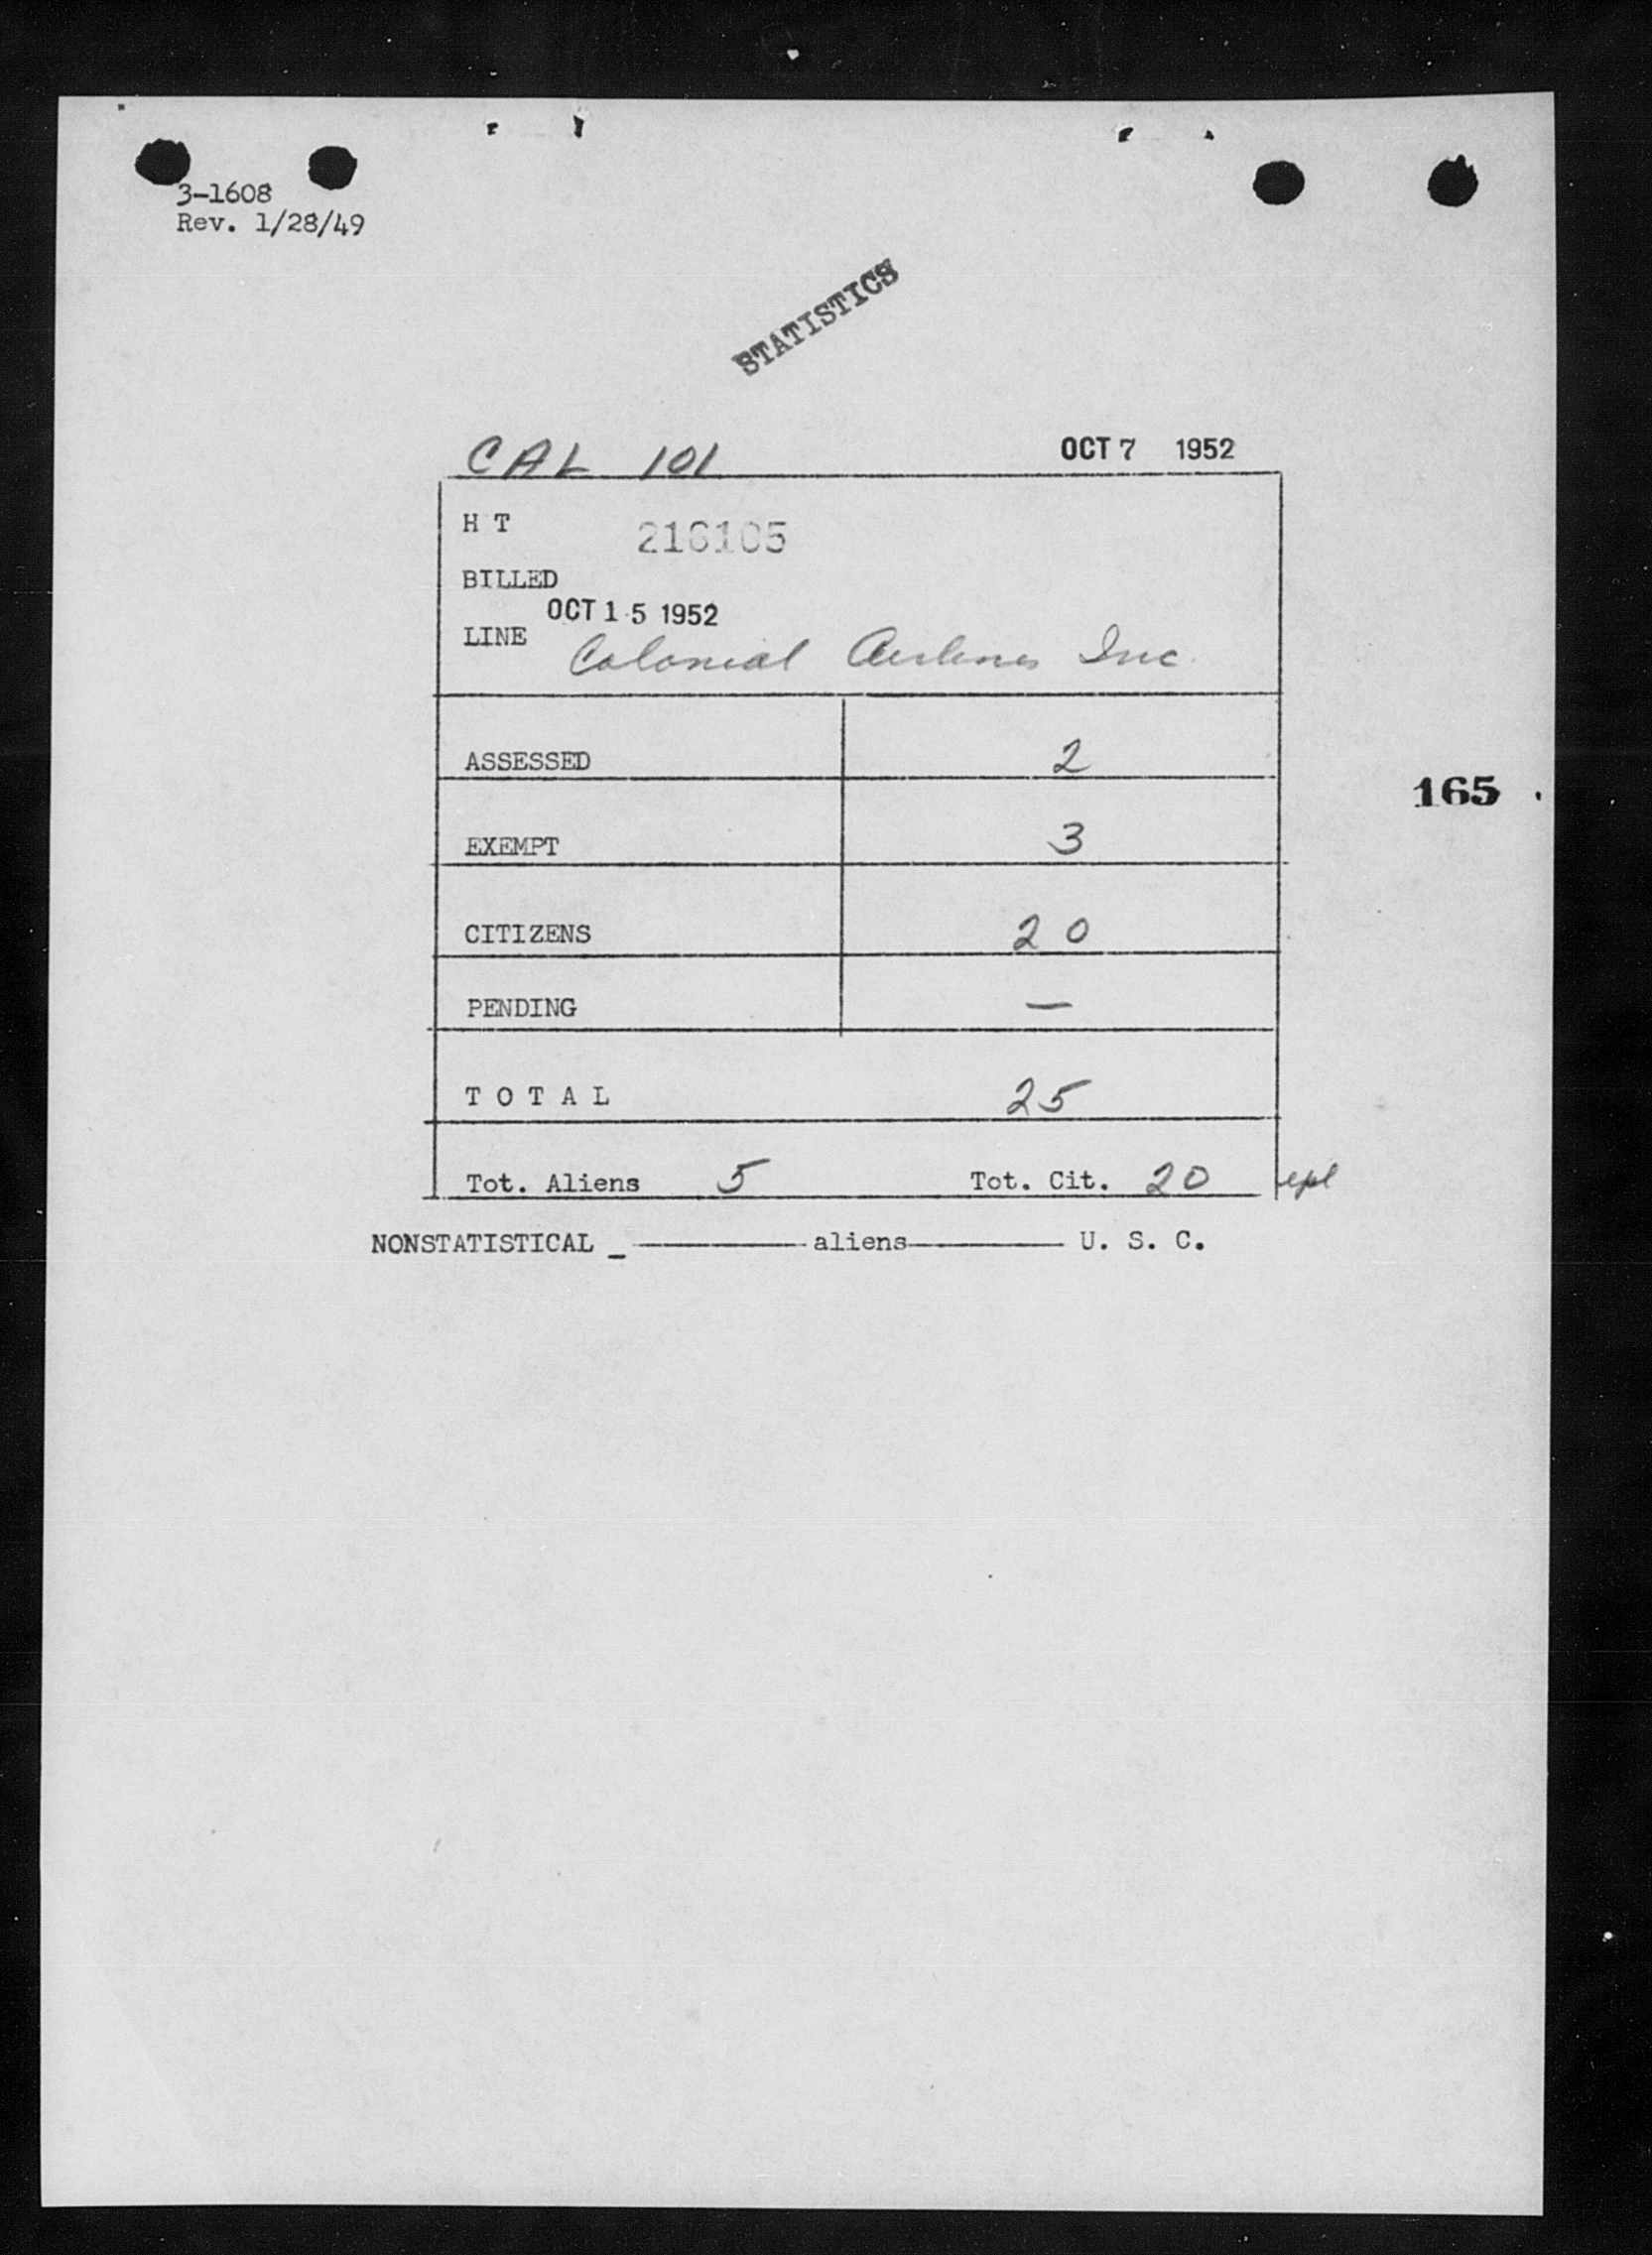 3-1608
Rev. 1/28/49
STATISTICS
CAL 101 OCT 7 1952
H T 216105
BILLED
OCT 15 1952
LINE Colonial Airlines Inc.
ASSESSED 2
165
EXEMPT 3
CITIZENS 20
PENDING —
T O T A L 25
Tot. Aliens 5 Tot. Cit. 20
NONSTATISTICAL _ ——— aliens ——— U. S. C.